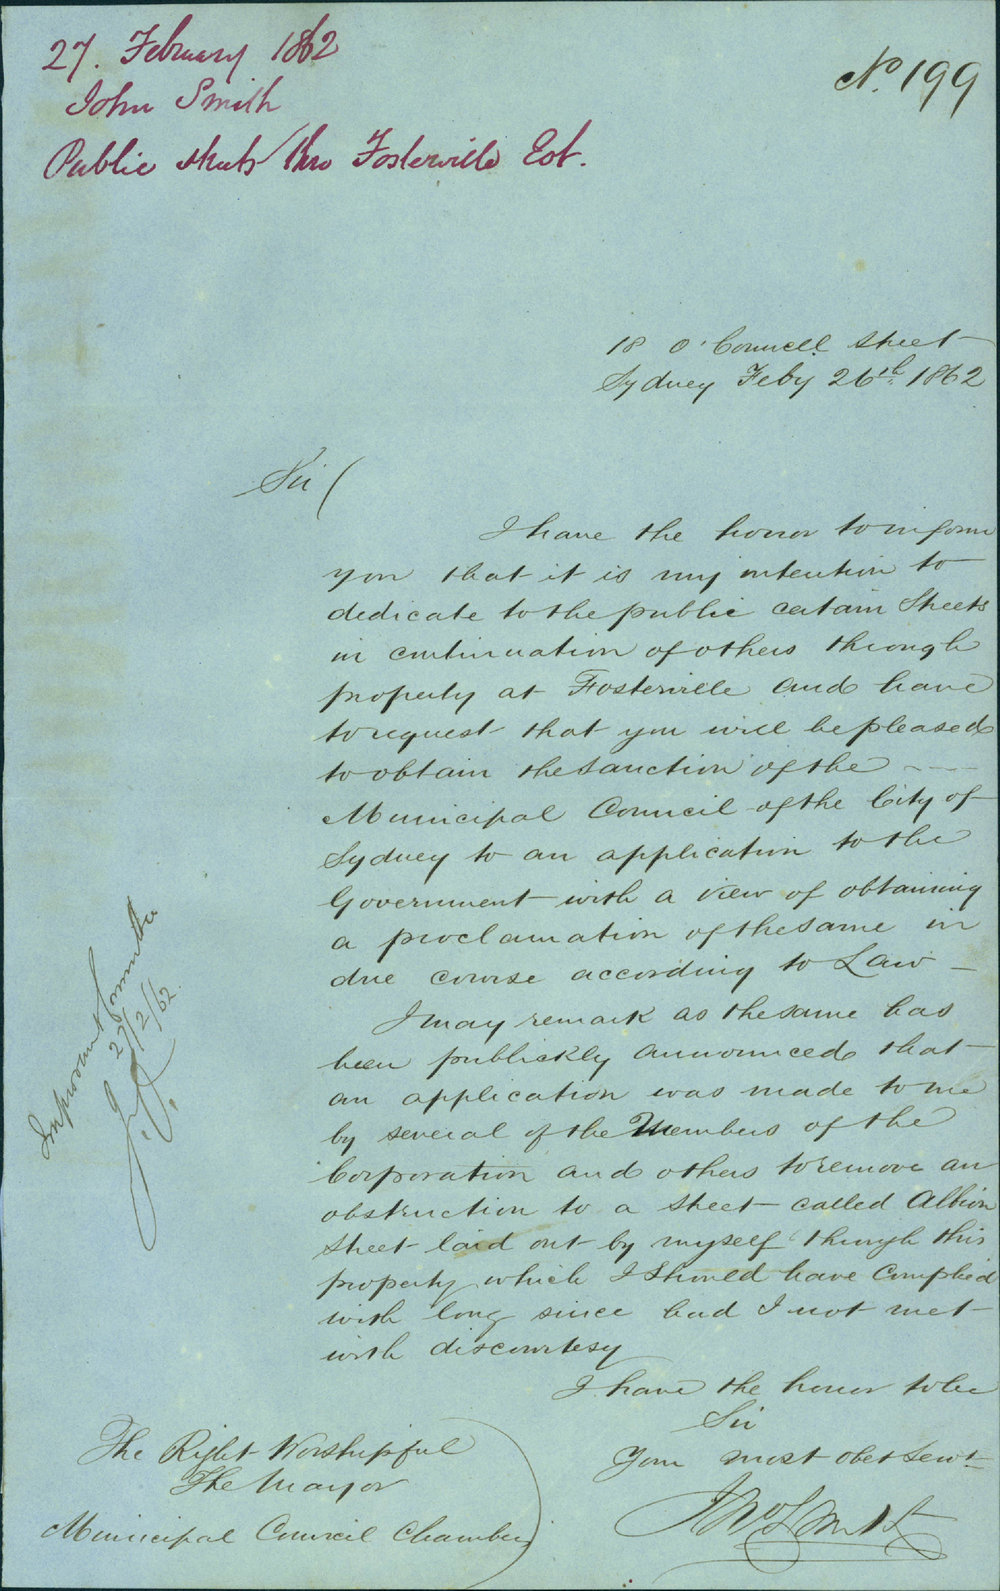 27. February 1862
John Smith
Public streets thro Fosterville Est.
No. 199
18 O'Connell Street
Sydney Feby 26th 1862
Sir
I have the honor to inform
you that it is my intention to
dedicate to the public certain Streets
in continuation of others through
property at Fosterville and have
to request that you will be pleased
to obtain the Sanction of the
Municipal Council of the City of
Sydney to an application to the
Government with a view of obtaining
a proclamation of the same in
due course according to Law —
I may remark as the same has
been publickly announced that
an application was made to me
by several of the Members of the
Corporation and others to remove an
obstruction to a Street called Albion
Street laid out by myself through this
property which I should have Complied
with long since had I not met
with discourtesy
I have the honor to be
Sir
Your most obet Servt
Jno Smith
The Right Worshipful
The Mayor
Municipal Council Chamber
Improvement Committee
27/2/62